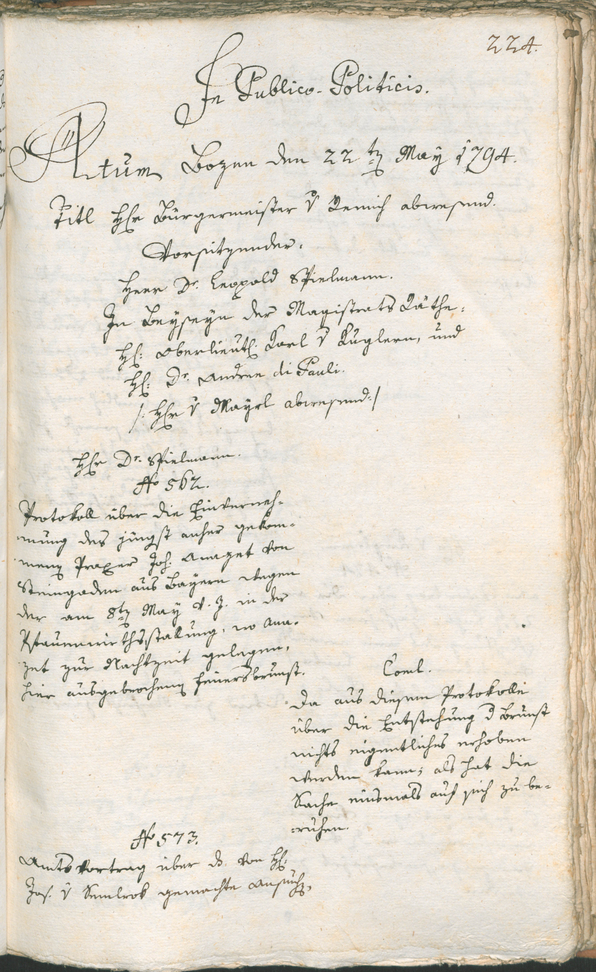 224.
In Publico-Politicis.
Actum Bozen den 22ten May 1794.
Titl Hhr Bürgermeister v Remich abwesend.
Vorsitzender.
Herr Dr. Leopold Spielmann.
In Beyseyn der Magistrats Räthe.
HE: Oberlieut: Karl v Kuglern, und
HE: Dr. Andree di Pauli.
/: Hhr v Mayrl abwesend :/
Hhr Dr. Spielmann.
No 562.
Protokoll über die Einverneh-
mung des jüngst anher gekom-
menen Joh: von
Steingaden aus Bayern wegen
der am 8ten May d. J. in der
stallung, wo
zur Nachtzeit gelegen,
hier ausgebrochenen Feuersbrunst.
Concl.
Da aus diesem Protokolle
über die Entstehung d Brunst
nichts eigentliches erhoben
werden kann; als hat die
Sache einsmals auf sich zu be-
ruhen.
No 573.
Amtsvortrag über d. von HE:
Jos. v gemachte Ansuchen,